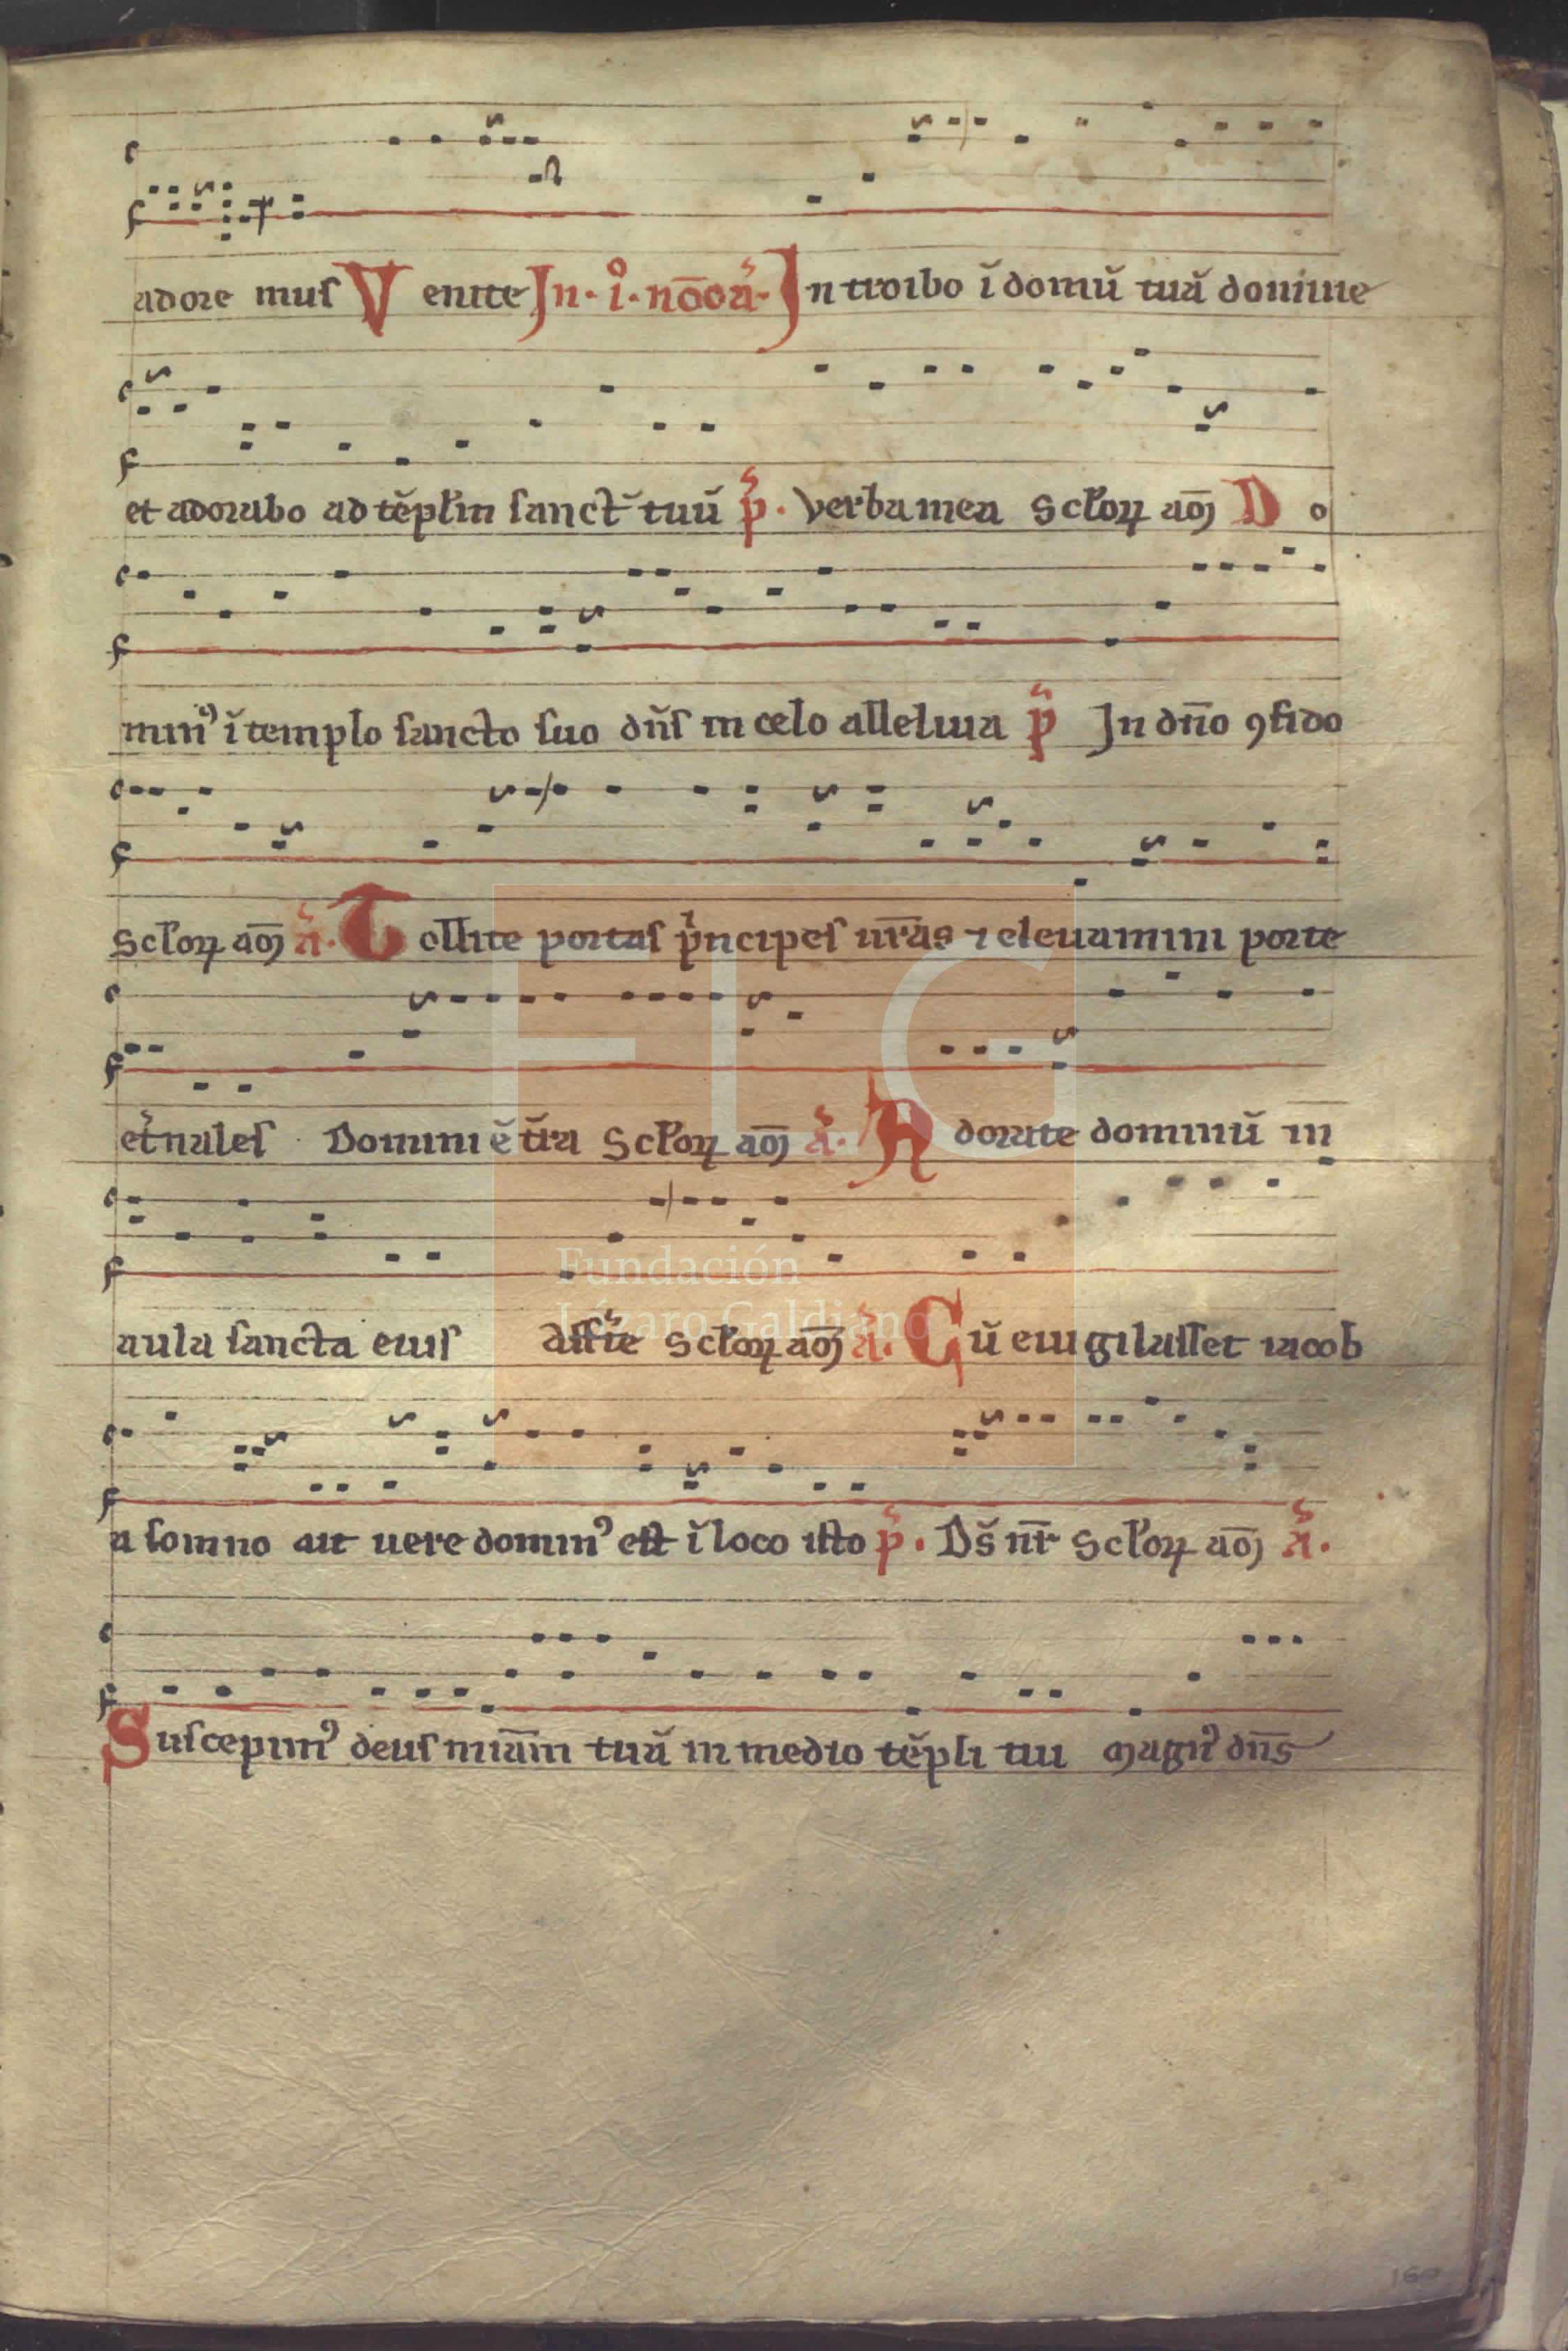 adore mus Venite In · i° · noc̄ a͛ · Introibo ĩ domũ tuã domine
et adorabo ad tẽplm̃ sanct̃ tuũ p͛ . Verba mea Sc̃loꝝ am̃ Do
minꝰ ĩ templo sancto suo dñs in celo alleluia p͛ In dño ꝯfido
Sc̃loꝝ am̃ a͛ . Tollite portas pͥncipes ur̃as ⁊ eleuamini porte
et͛nales Domini ẽ t͛ra Sc̃loꝝ am̃ a͛ . Adorate dominũ in
aula sancta eius Aff͛te Sc̃loꝝ am̃ a͛ . Cũ euigilasset iacob
a somno ait uere dominꝰ est ĩ loco isto p͛ . Ds̃ nr̃ Sc̃loꝝ am̃ a͛ .
Suscepimꝰ deus miãm tuã in medio tẽpli tui Magnꝰ dñs
Fundación
Lázaro Galdiano
FLG
160